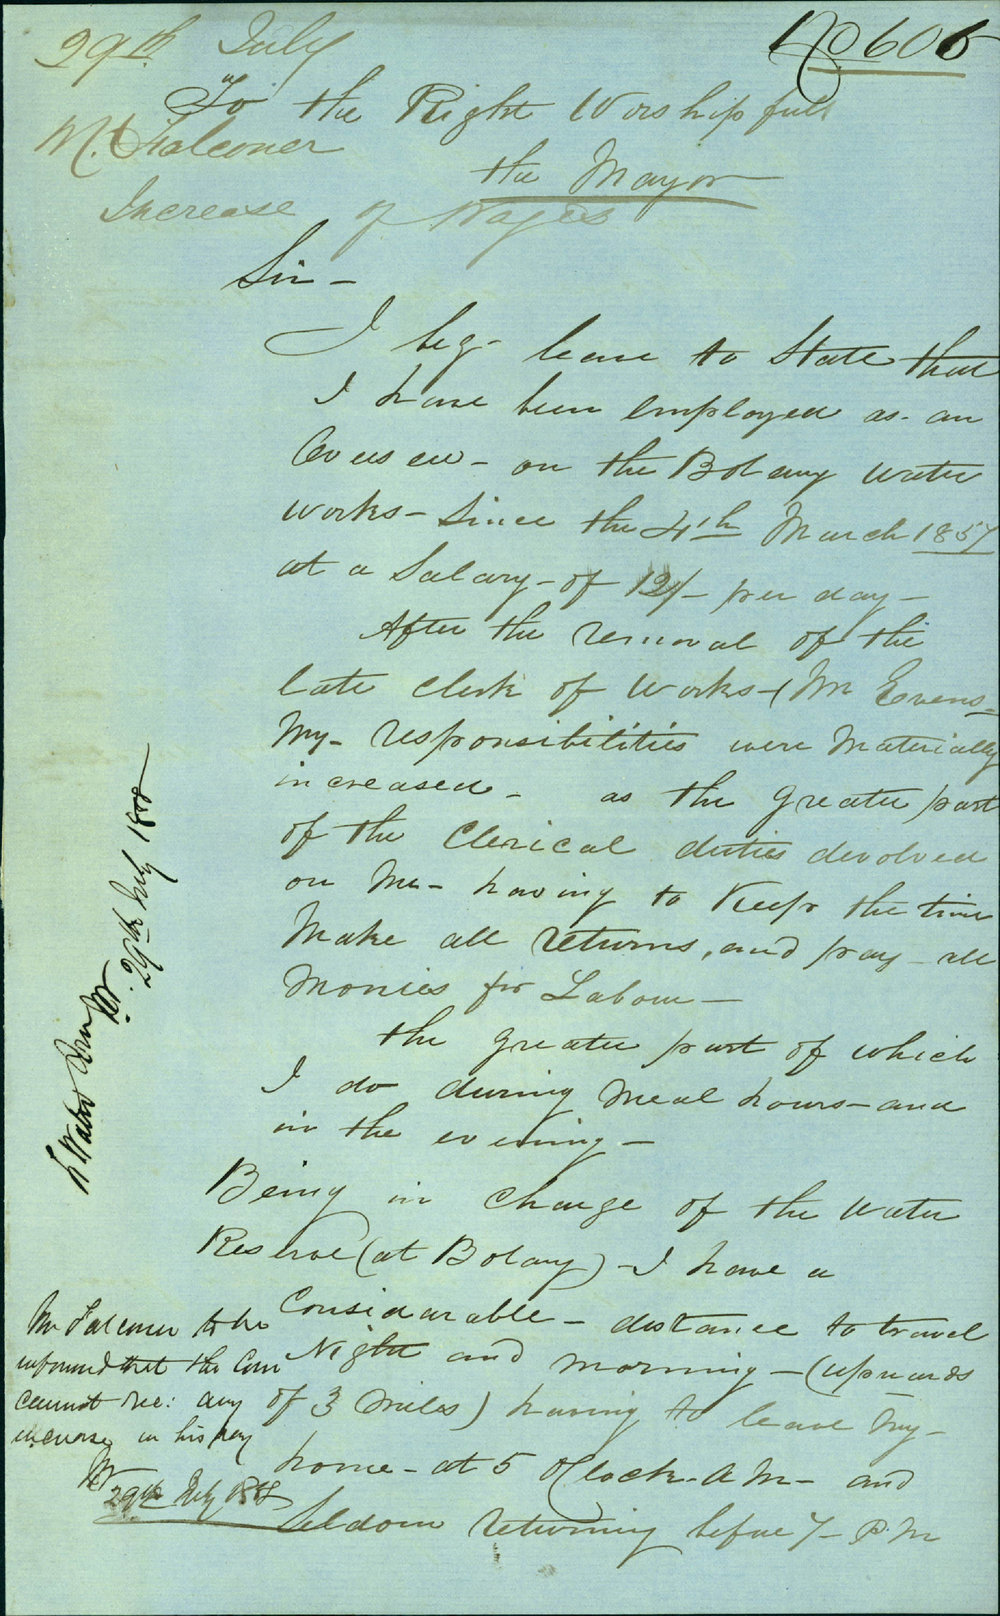 29th July
No 606
To the Right Worshipfull
M. Falconer
the Mayor
Increase of Wages
Sir -
I beg- leave to State that
I have been employed as- an
Overseer- on the Botany Water
Works- Since the 4th March 1857
at a Salary- of 12/- per day-
After the removal of the
late Clerk of Works- (Mr Evens-
My- responsibilities were Materially
increased- as the Greater part
of the Clerical duties devolved
on Me- having to Keep the time
Make all returns, and pay- all
Monies for Labour-
the greater part of which
I do during Meal hours- and
in the evening-
Being in Charge of the Water
Reserve (at Botany) - I have a
Considarable- distance to travel
Night and morning- (upwards
of 3 Miles) having to leave My-
home- at 5 OClock. A M- and
Seldom returning before 7- P. M
Water
29th July 1858
Mr Falconer to be
informed that the Com
cannot rec: any
increase in his pay
29th July 1858